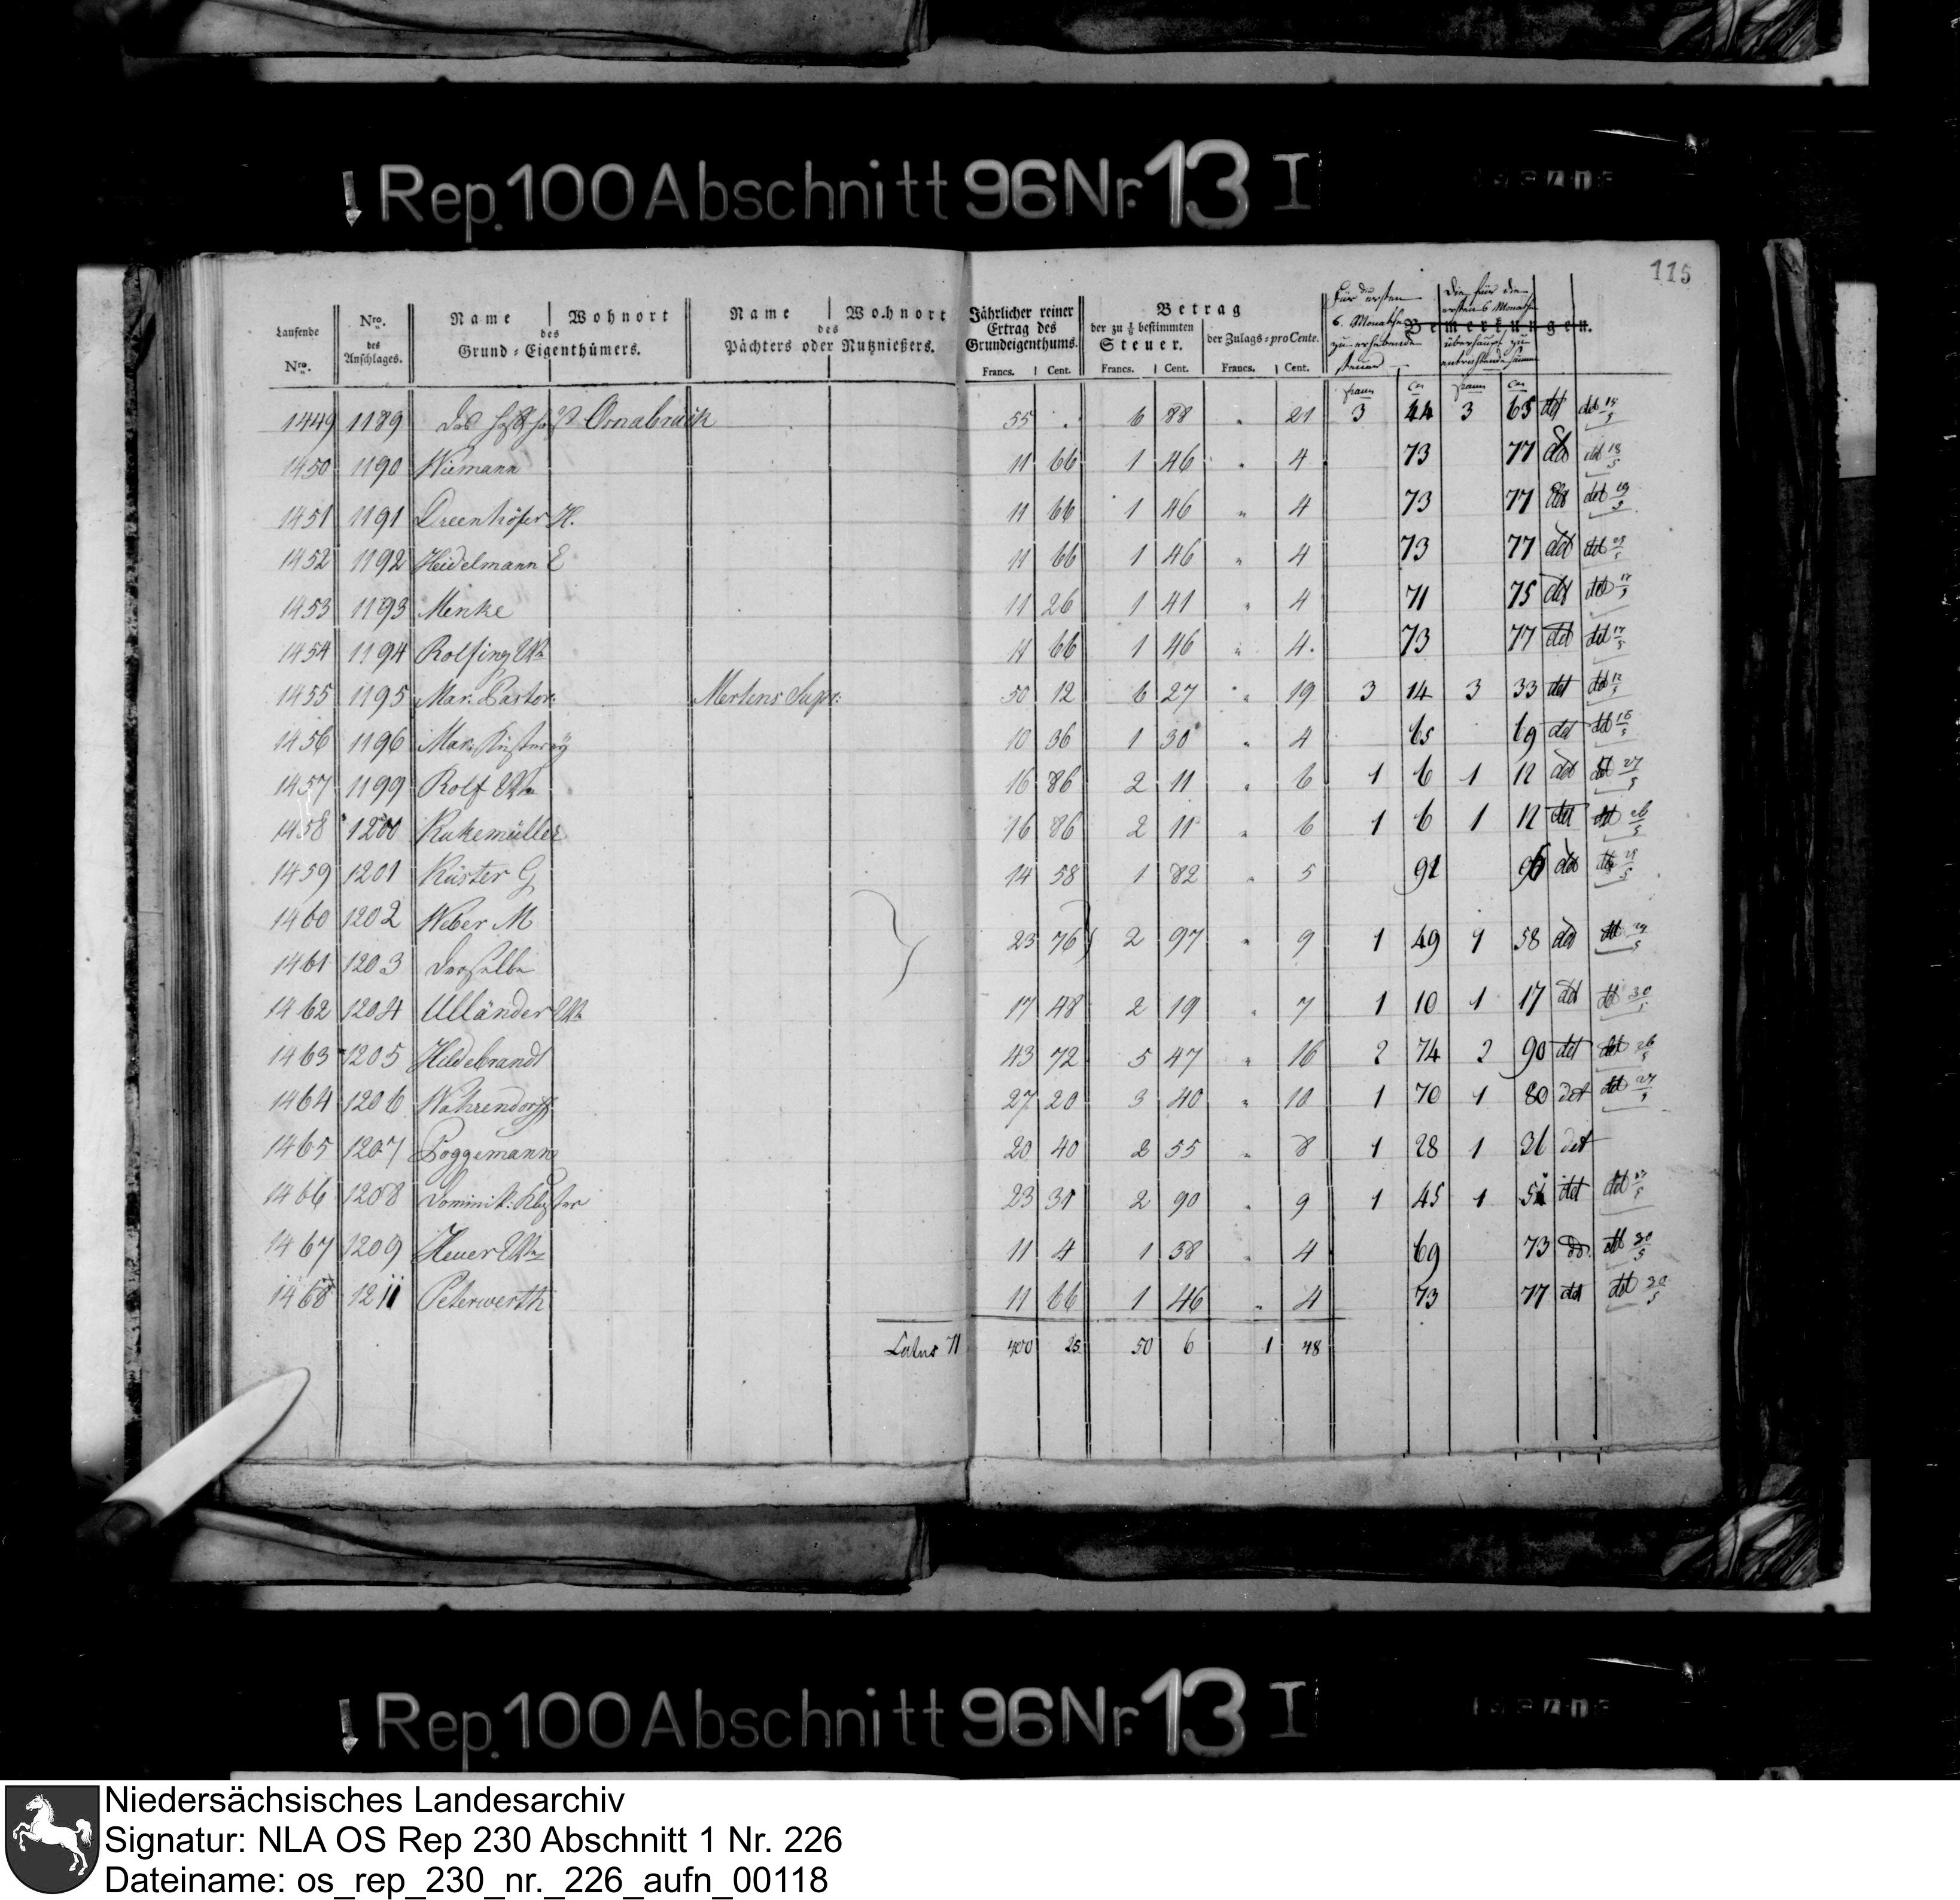 Rep. 100 Abschnitt 96 Nr. 13 I
115
Laufende Nro.
Nro. des Anschlages.
Name | Wohnort
des
Grund-Eigenthümers.
Name | Wohnort
des
Pächters oder Nutznießers.
Jährlicher reiner Ertrag des Grundeigenthums.
Francs. | Cent.
Betrag
der zu ⅛ bestimmten Steuer.
Francs. | Cent.
der Zulags-proCente.
Francs. | Cent.
Für die ersten 6. Monathe zu erhebende Steuer
Die für die ersten 6 Monathe überhaupt zu entrichtende Summe
Bemerkungen.
franc Ces franc Ces
1449 1189 Das Osnabruck 55 . 6 88 " 21 3 44 3 65 det det
1450 1190 Wiemann 11 66 1 46 " 4 73 77 det det 18/5
1451 1191 Dreenhöfer H. 11 66 1 46 " 4 73 77 det det
1452 1192 Heidelmann E 11 66 1 46 " 4 73 77 det det
1453 1193 Menke 11 26 1 41 " 4 71 75 det det
1454 1194 Rolfing Ww 11 66 1 46 " 4. 73 77 det det 17/5
1455 1195 Mar. Pastor. Mertens Supr: 50 12 6 27 " 19 3 14 3 33 det det 12/5
1456 1196 Mar. Küsterey 10 36 1 30 " 4 65 69 det det 16/5
1457 1199 Rolf Ww 16 86 2 11 " 6 1 6 1 12 det det 27/5
1458 1200 Kukemüller 16 86 2 11 " 6 1 6 1 12 det det 26/5
1459 1201 Küster G 14 58 1 82 " 5 91 96 det det
1460 1202 Weber M
23 76 2 97 " 9 1 49 1 58 det det
1461 1203 Derselbe
1462 1204 Ulländer Ww 17 48 2 19 " 7 1 10 1 17 det det 30/5
1463 1205 Hildebrandt 43 72 5 47 " 16 2 74 2 90 det det 26/5
1464 1206 Wahrendorff 27 20 3 40 " 10 1 70 1 80 det det 27/5
1465 1207 Poggemann 20 40 2 55 " 8 1 28 1 36 det
1466 1208 Dominik: Kloster 23 31 2 90 " 9 1 45 1 54 det det
1467 1209 Heuer Ww 11 4 1 38 " 4 69 73 do. det 30/5
1468 1211 Peterwerth 11 66 1 46 " 4 73 77 det det 30/5
Latus 71 400 25 50 6 1 48
Rep. 100 Abschnitt 96 Nr. 13 I
Niedersächsisches Landesarchiv
Signatur: NLA OS Rep 230 Abschnitt 1 Nr. 226
Dateiname: os_rep_230_nr._226_aufn_00118